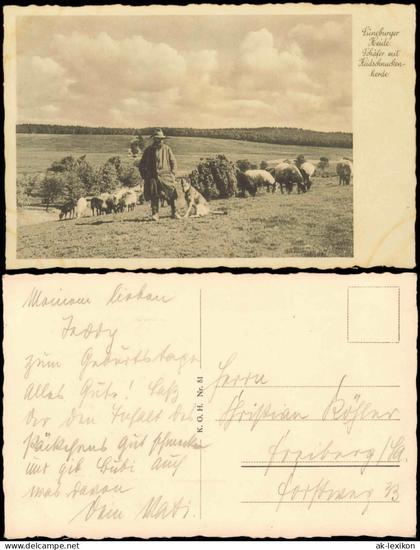 Lüneburger
Heide.
Schäfer mit
Heidschnucken-
herde
Meinem lieben
Teddy
zum Geburtstage
Alles Gute! Laß
Dir den Inhalt des
Päckchens gut schmecken
und gib Bubi auch
was davon
Dein Vati.
K. G. H. Nr. 81
Herrn
Christian Köhler
Freiberg /Sa.
Forstweg
ak-lexikon
ak-lexikon.com